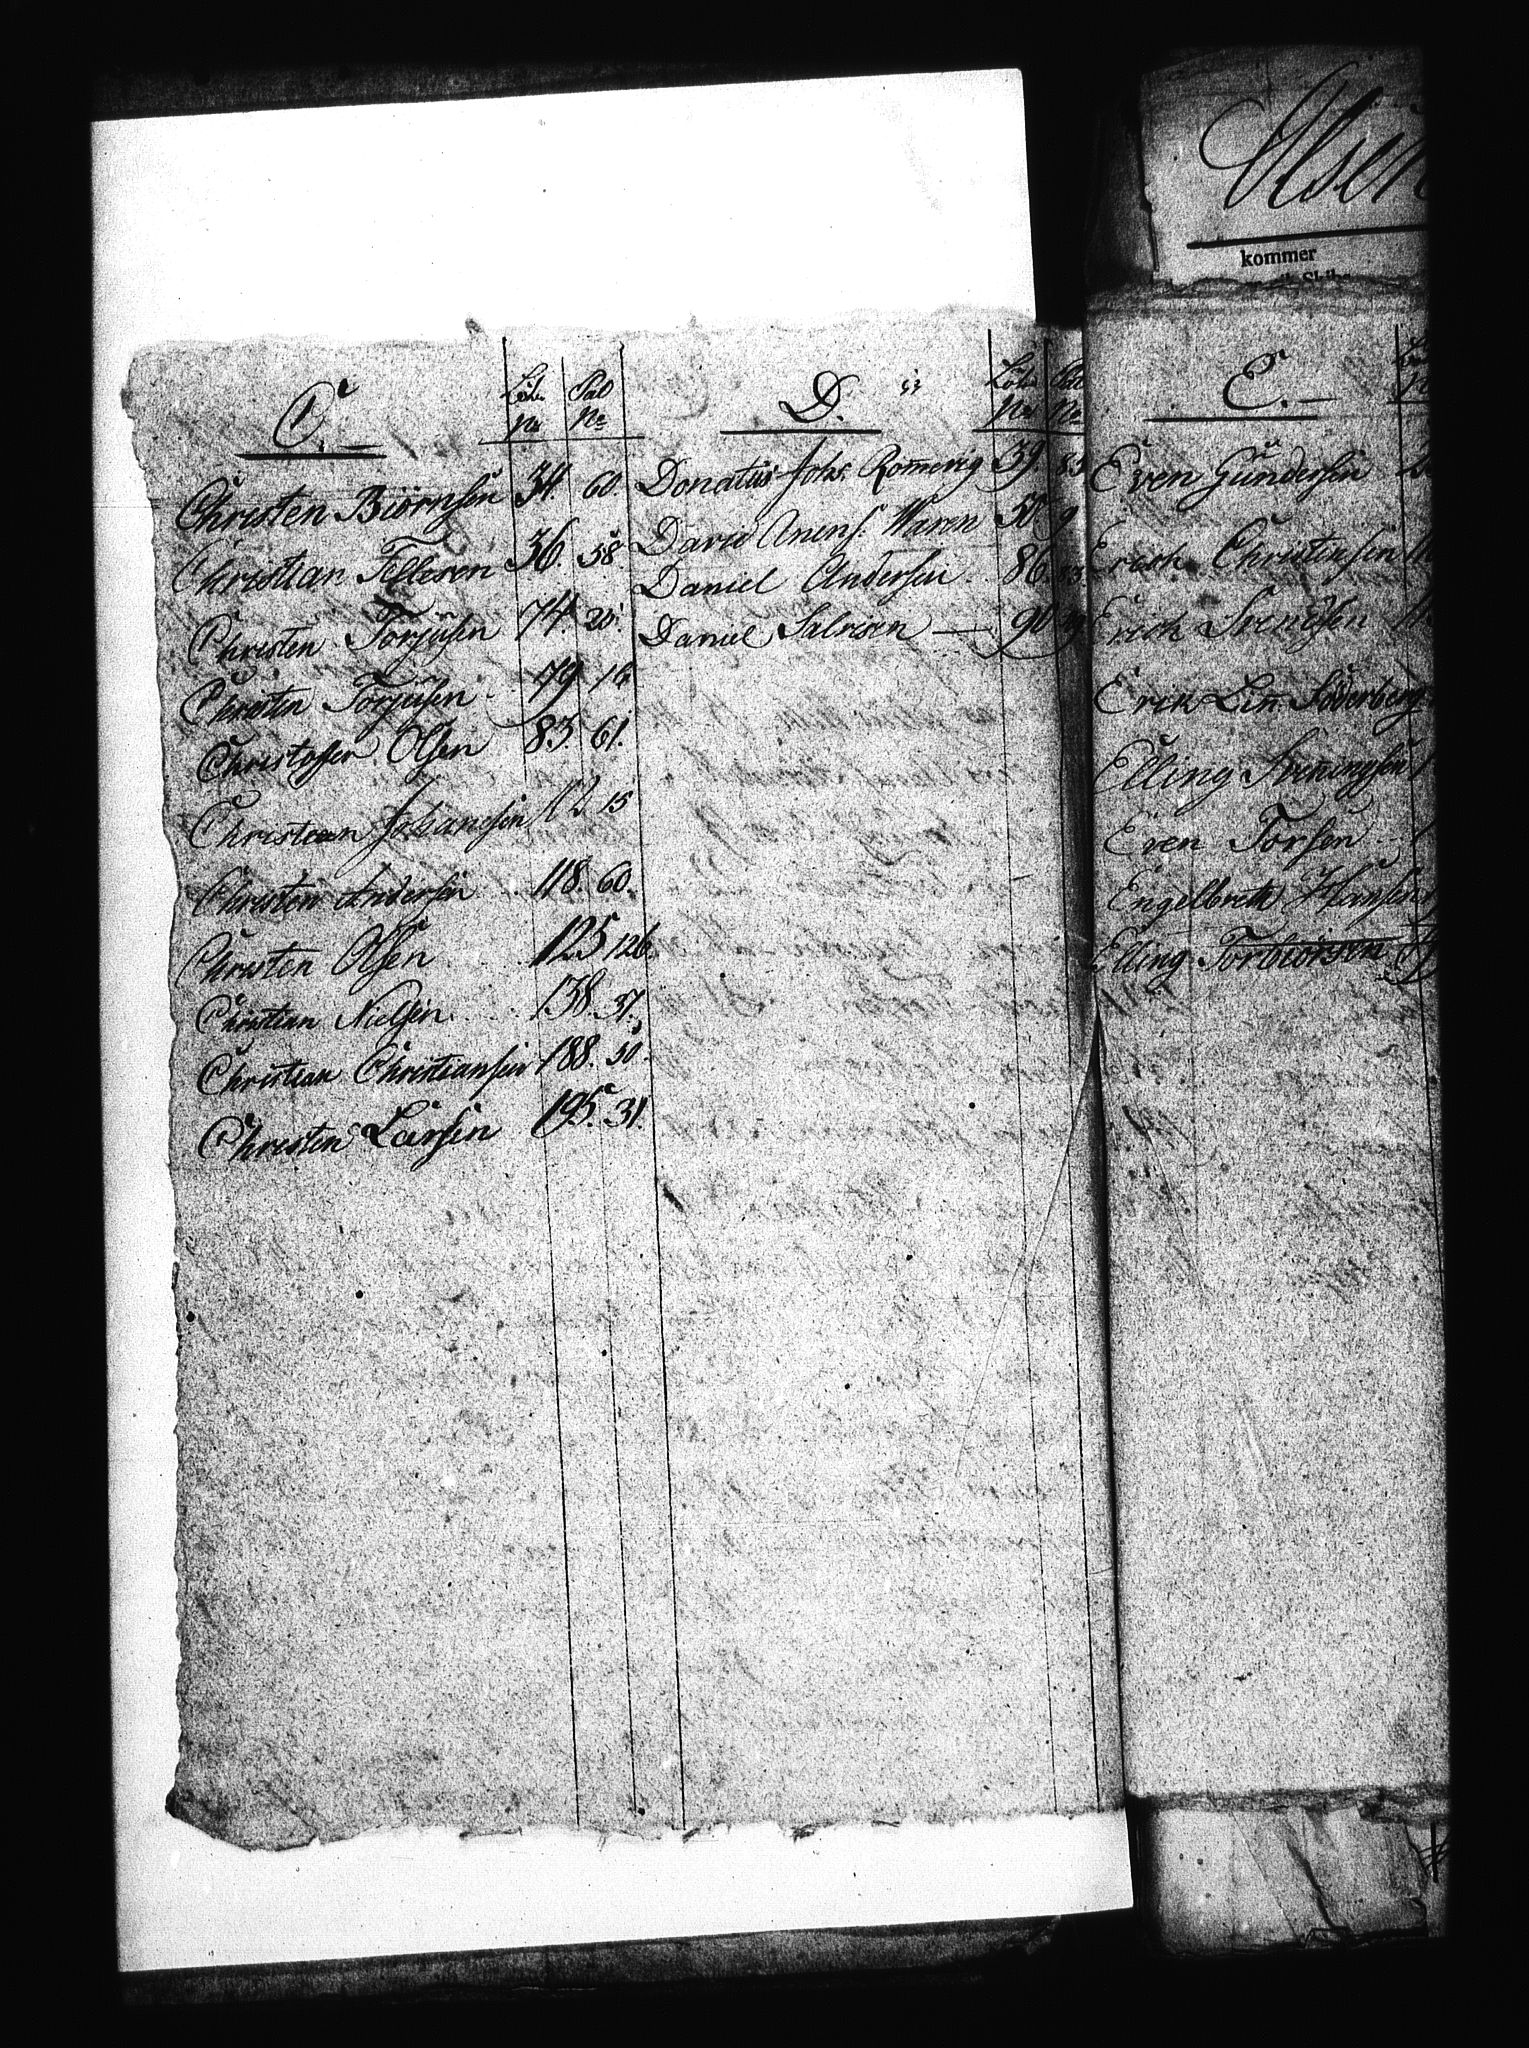 Olsen
kommer
C.
Löbe Pat
No No
Christen Biörnsen 34. 60.
Christian Tellesen 36. 58.
Christen Torjusen 74. 20.
Christen Torjusen 79 16
Christoffer Olsen 83. 61.
Christian Johansen 112 15
Christen Andersen 118. 60.
Christen Olsen 125 126.
Christian Nielsen 138. 37.
Christian Christiansen 188. 50.
Christen Larsen 195. 31.
D.
Löbe Pat
No No
Donatus Johs. Romerig 39 83
David Waren 50 9
Daniel Andersen 86.
Daniel Salvesen 90 39
E.
Even Gundersen
Erich Christensen
Erich Svendsen
Erik Lin Söderberg
Elling Svenungsen
Even Torsen
Engelbreth Hansen
Elling Torbiörsen